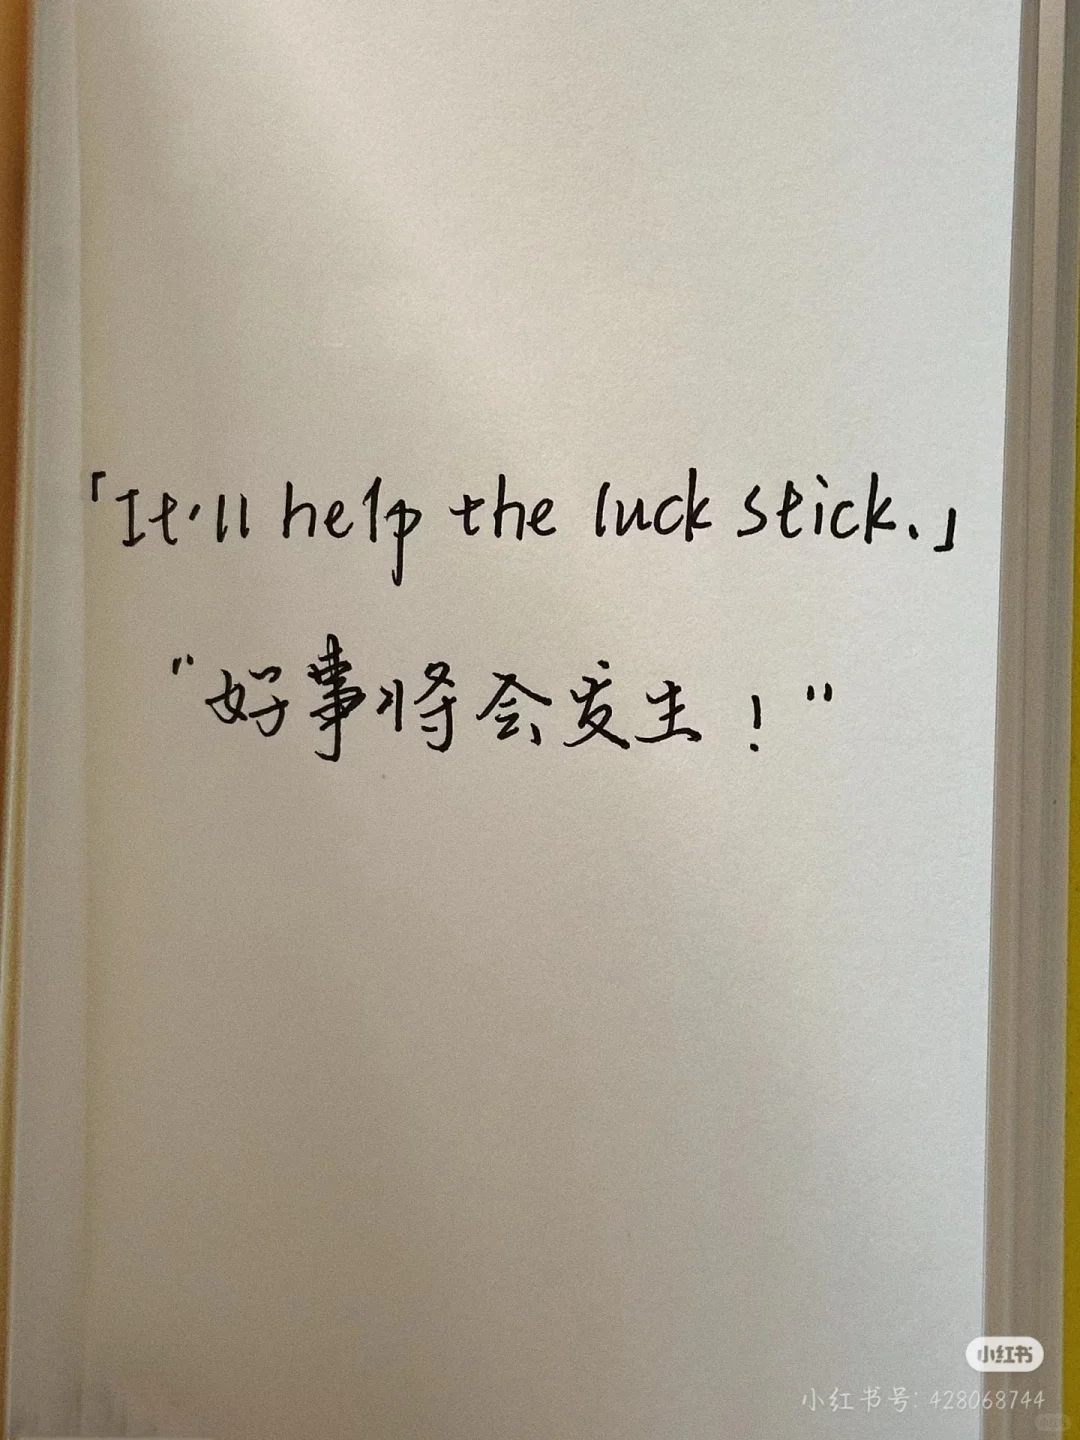 「It'll help the luck stick.」
"好事将会发生！"
小红书
小红书号: 428068744